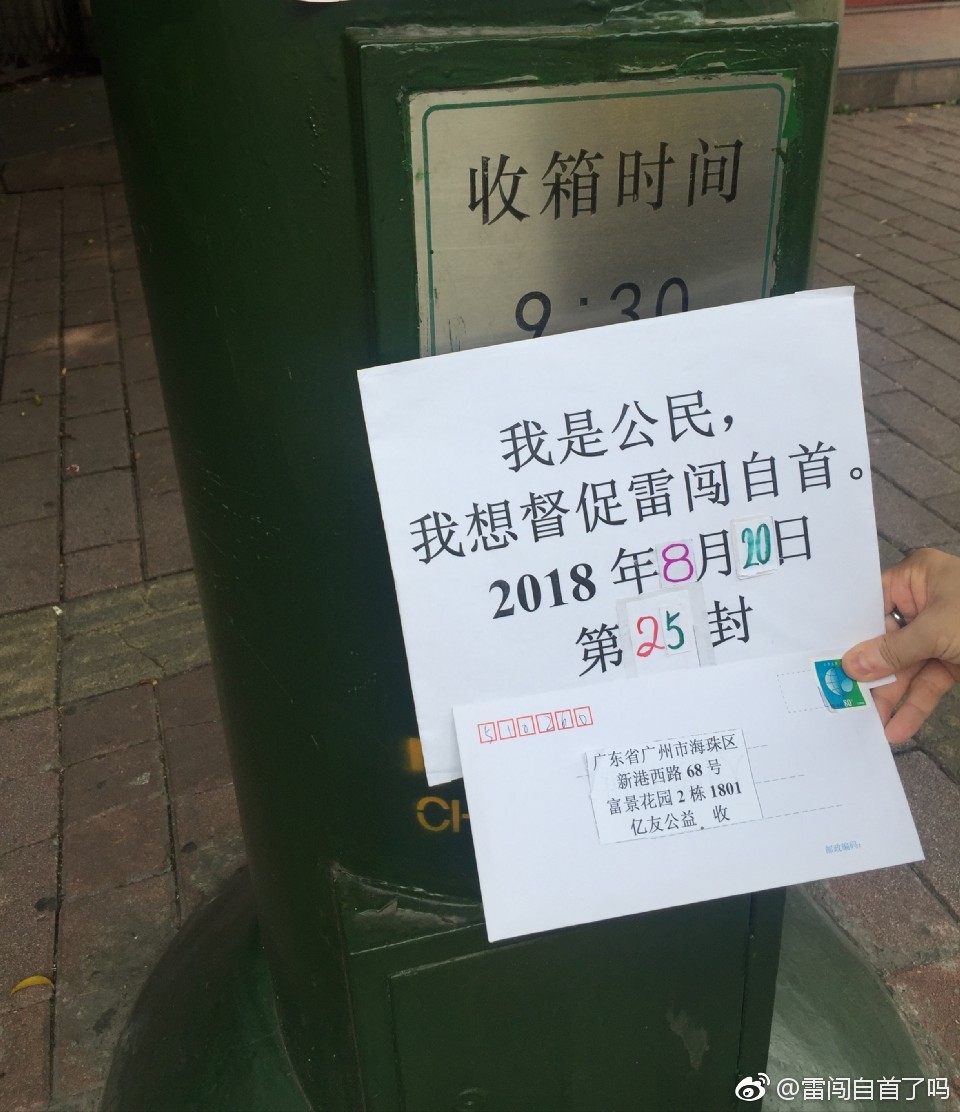 收箱时间
9:30
我是公民，
我想督促雷闯自首。
2018年8月20日
第25封
510260
广东省广州市海珠区
新港西路68号
富景花园2栋1801
亿友公益 收
邮政编码
CH
@雷闯自首了吗